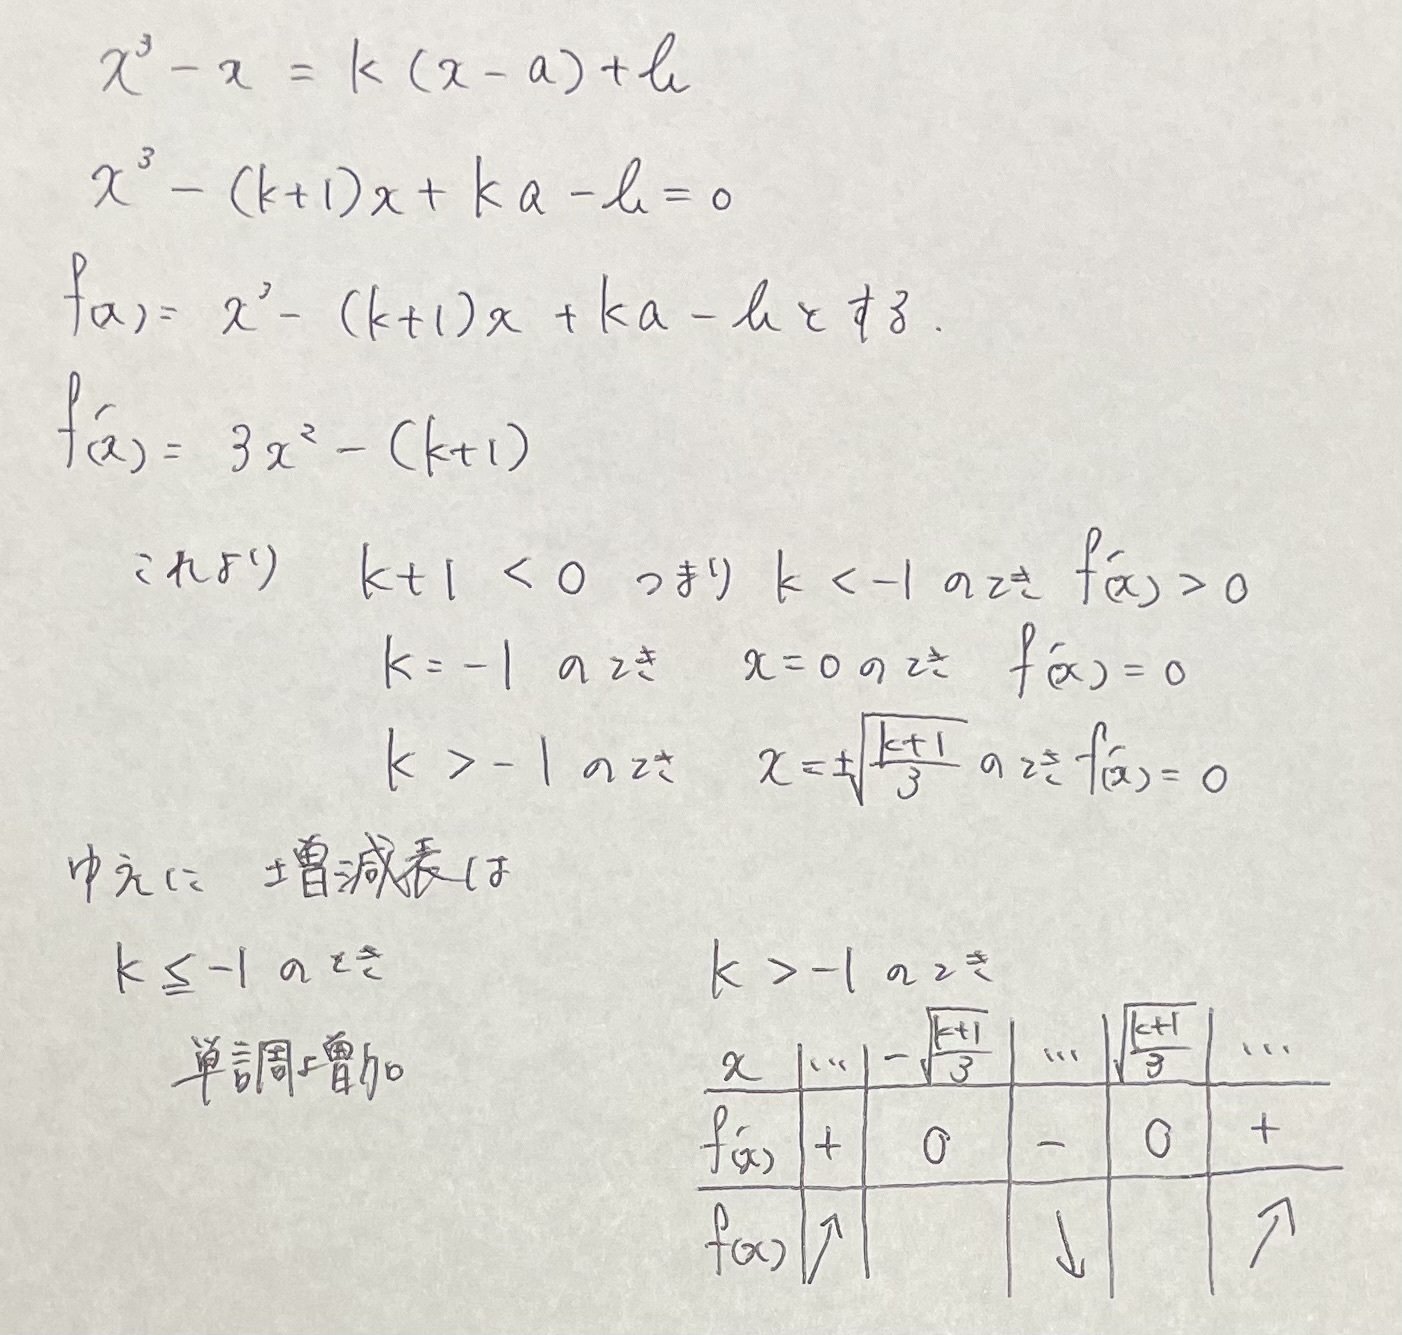 x³ - x = k(x - a) + b
x³ - (k+1)x + ka - b = 0
f(x) = x³ - (k+1)x + ka - b とする.
f'(x) = 3x² - (k+1)
これより k+1 < 0 つまり k < -1 のとき f'(x) > 0
k = -1 のとき x = 0 のとき f'(x) = 0
k > -1 のとき x = ±√((k+1)/3) のとき f'(x) = 0
ゆえに 増減表は
k ≦ -1 のとき
単調増加
k > -1 のとき
x … -√((k+1)/3) … √((k+1)/3) …
f'(x) + 0 - 0 +
f(x) ↗ ↘ ↗